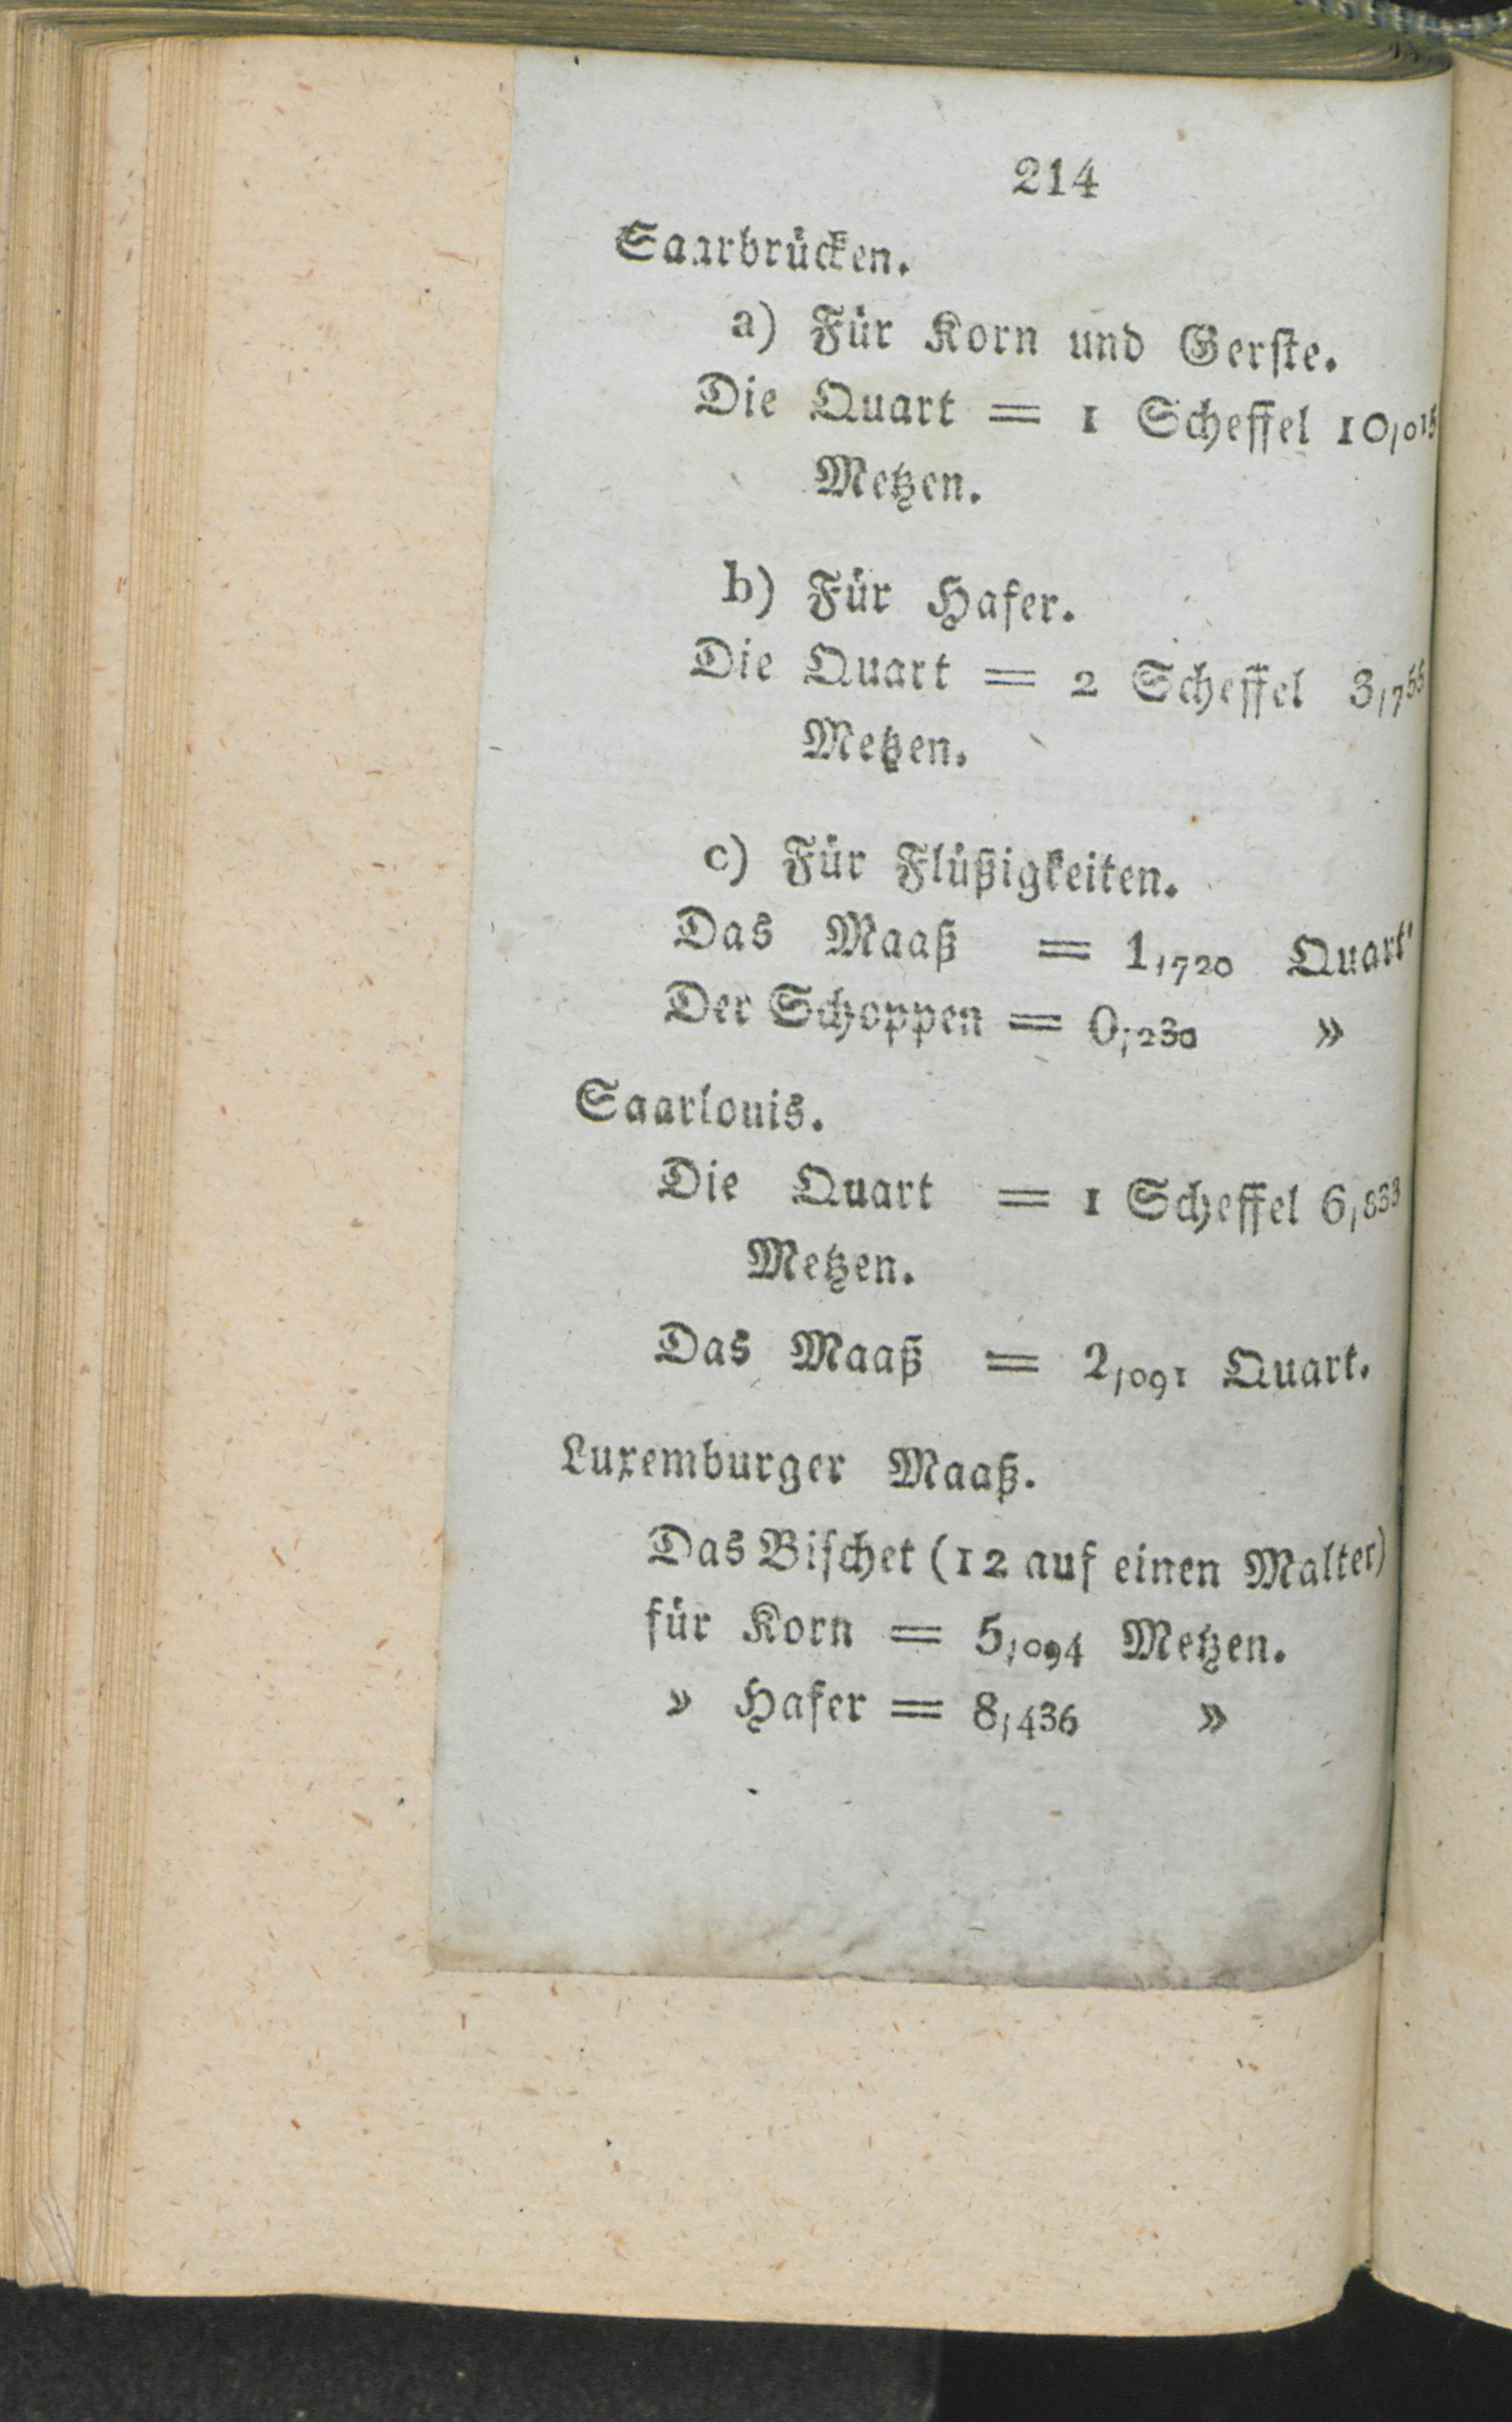 214
Saarbrücken.
a) Für Korn und Gerste.
Die Quart = 1 Scheffel 10,015
Metzen.
b) Für Hafer.
Die Quart = 2 Scheffel 3,755
Metzen.
c) Für Flüßigkeiten.
Das Maaß = 1,720 Quart'
Der Schoppen = 0,230 »
Saarlouis.
Die Quart = 1 Scheffel 6,833
Metzen.
Das Maaß = 2,091 Quart.
Luxemburger Maaß.
Das Bischet (12 auf einen Malter)
für Korn = 5,094 Metzen.
» Hafer = 8,436 »